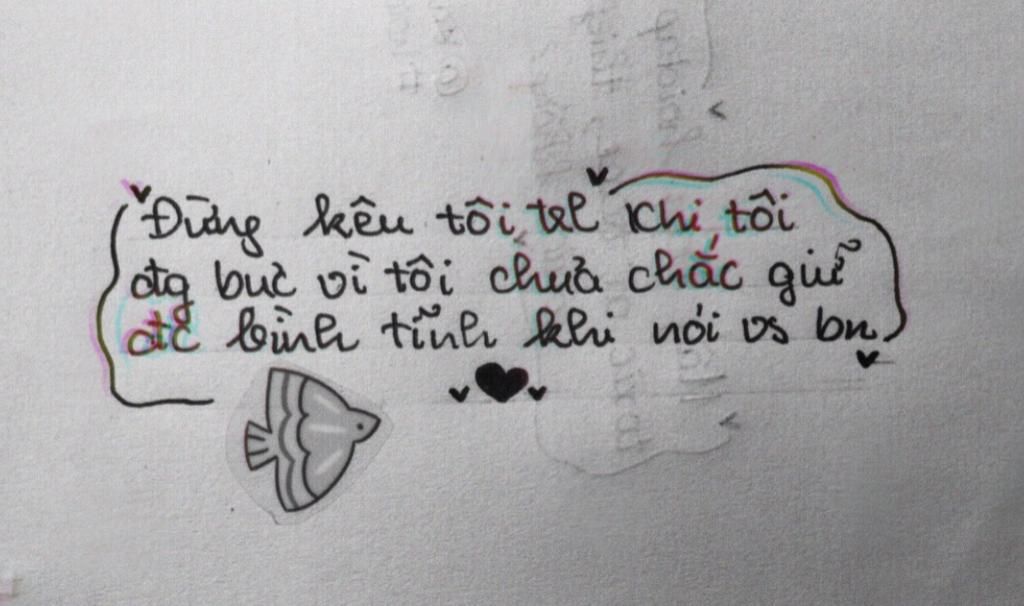 Đừng kêu tôi txl khi tôi
đtg bực vì tôi chưa chắc giữ
đtc bình tĩnh khi nói vs bn